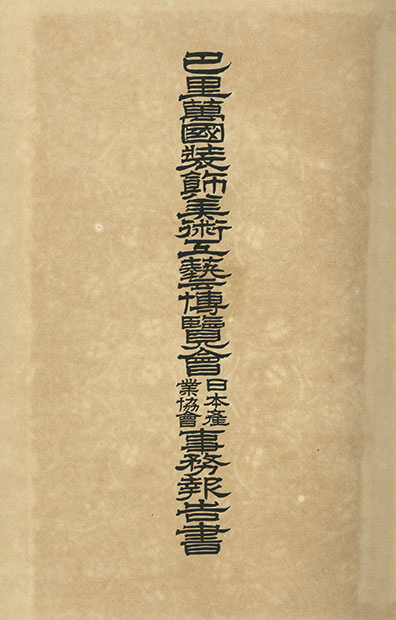 巴里萬國装飾美術工藝博覽會
日本產
業協會
事務報告書